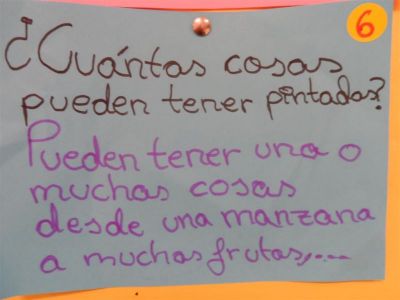 6
¿Cuántas cosas
pueden tener pintadas?
Pueden tener una o
muchas cosas
desde una manzana
a muchas frutas,...